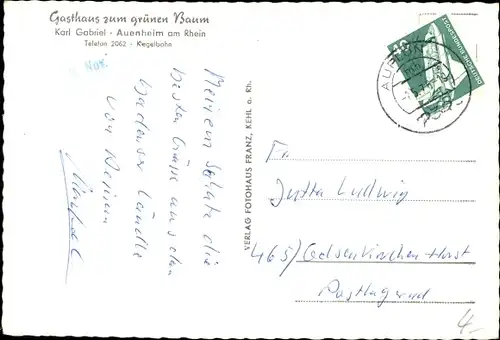 Gasthaus zum grünen Baum
Karl Gabriel - Auenheim am Rhein
Telefon 2062 - Kegelbahn
Meinem Schatz die
besten Grüsse aus dem
Badener Ländle
von Deinem
VERLAG FOTOHAUS FRANZ, KEHL a. Rh.
DEUTSCHE BUNDESPOST
Fr.
Jutta Ludwig
465/Gelsenkirchen-Horst
Postlagernd
4.-